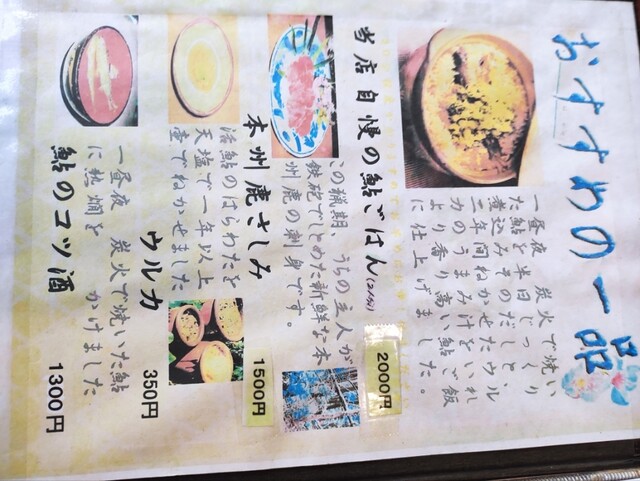 おすすめの一品
一昼夜 炭火で焼い
た鮎を半日じっくり
煮込みそのだしと、
二年間ねかせたウル
カのうまみ汁をいれ
より香り高いご飯
に仕上げました。
当店自慢の鮎ごはん(2人分)
2000円
この猟期、うちの主人が
鉄砲でしとめた新鮮な本
州鹿の刺身です。
本州鹿さしみ
1500円
活鮎のはらわたを
天塩で一年以上
壺でねかせました
ウルカ
350円
一昼夜 炭火で焼いた鮎
に熱燗を かけました
鮎のコツ酒
1300円